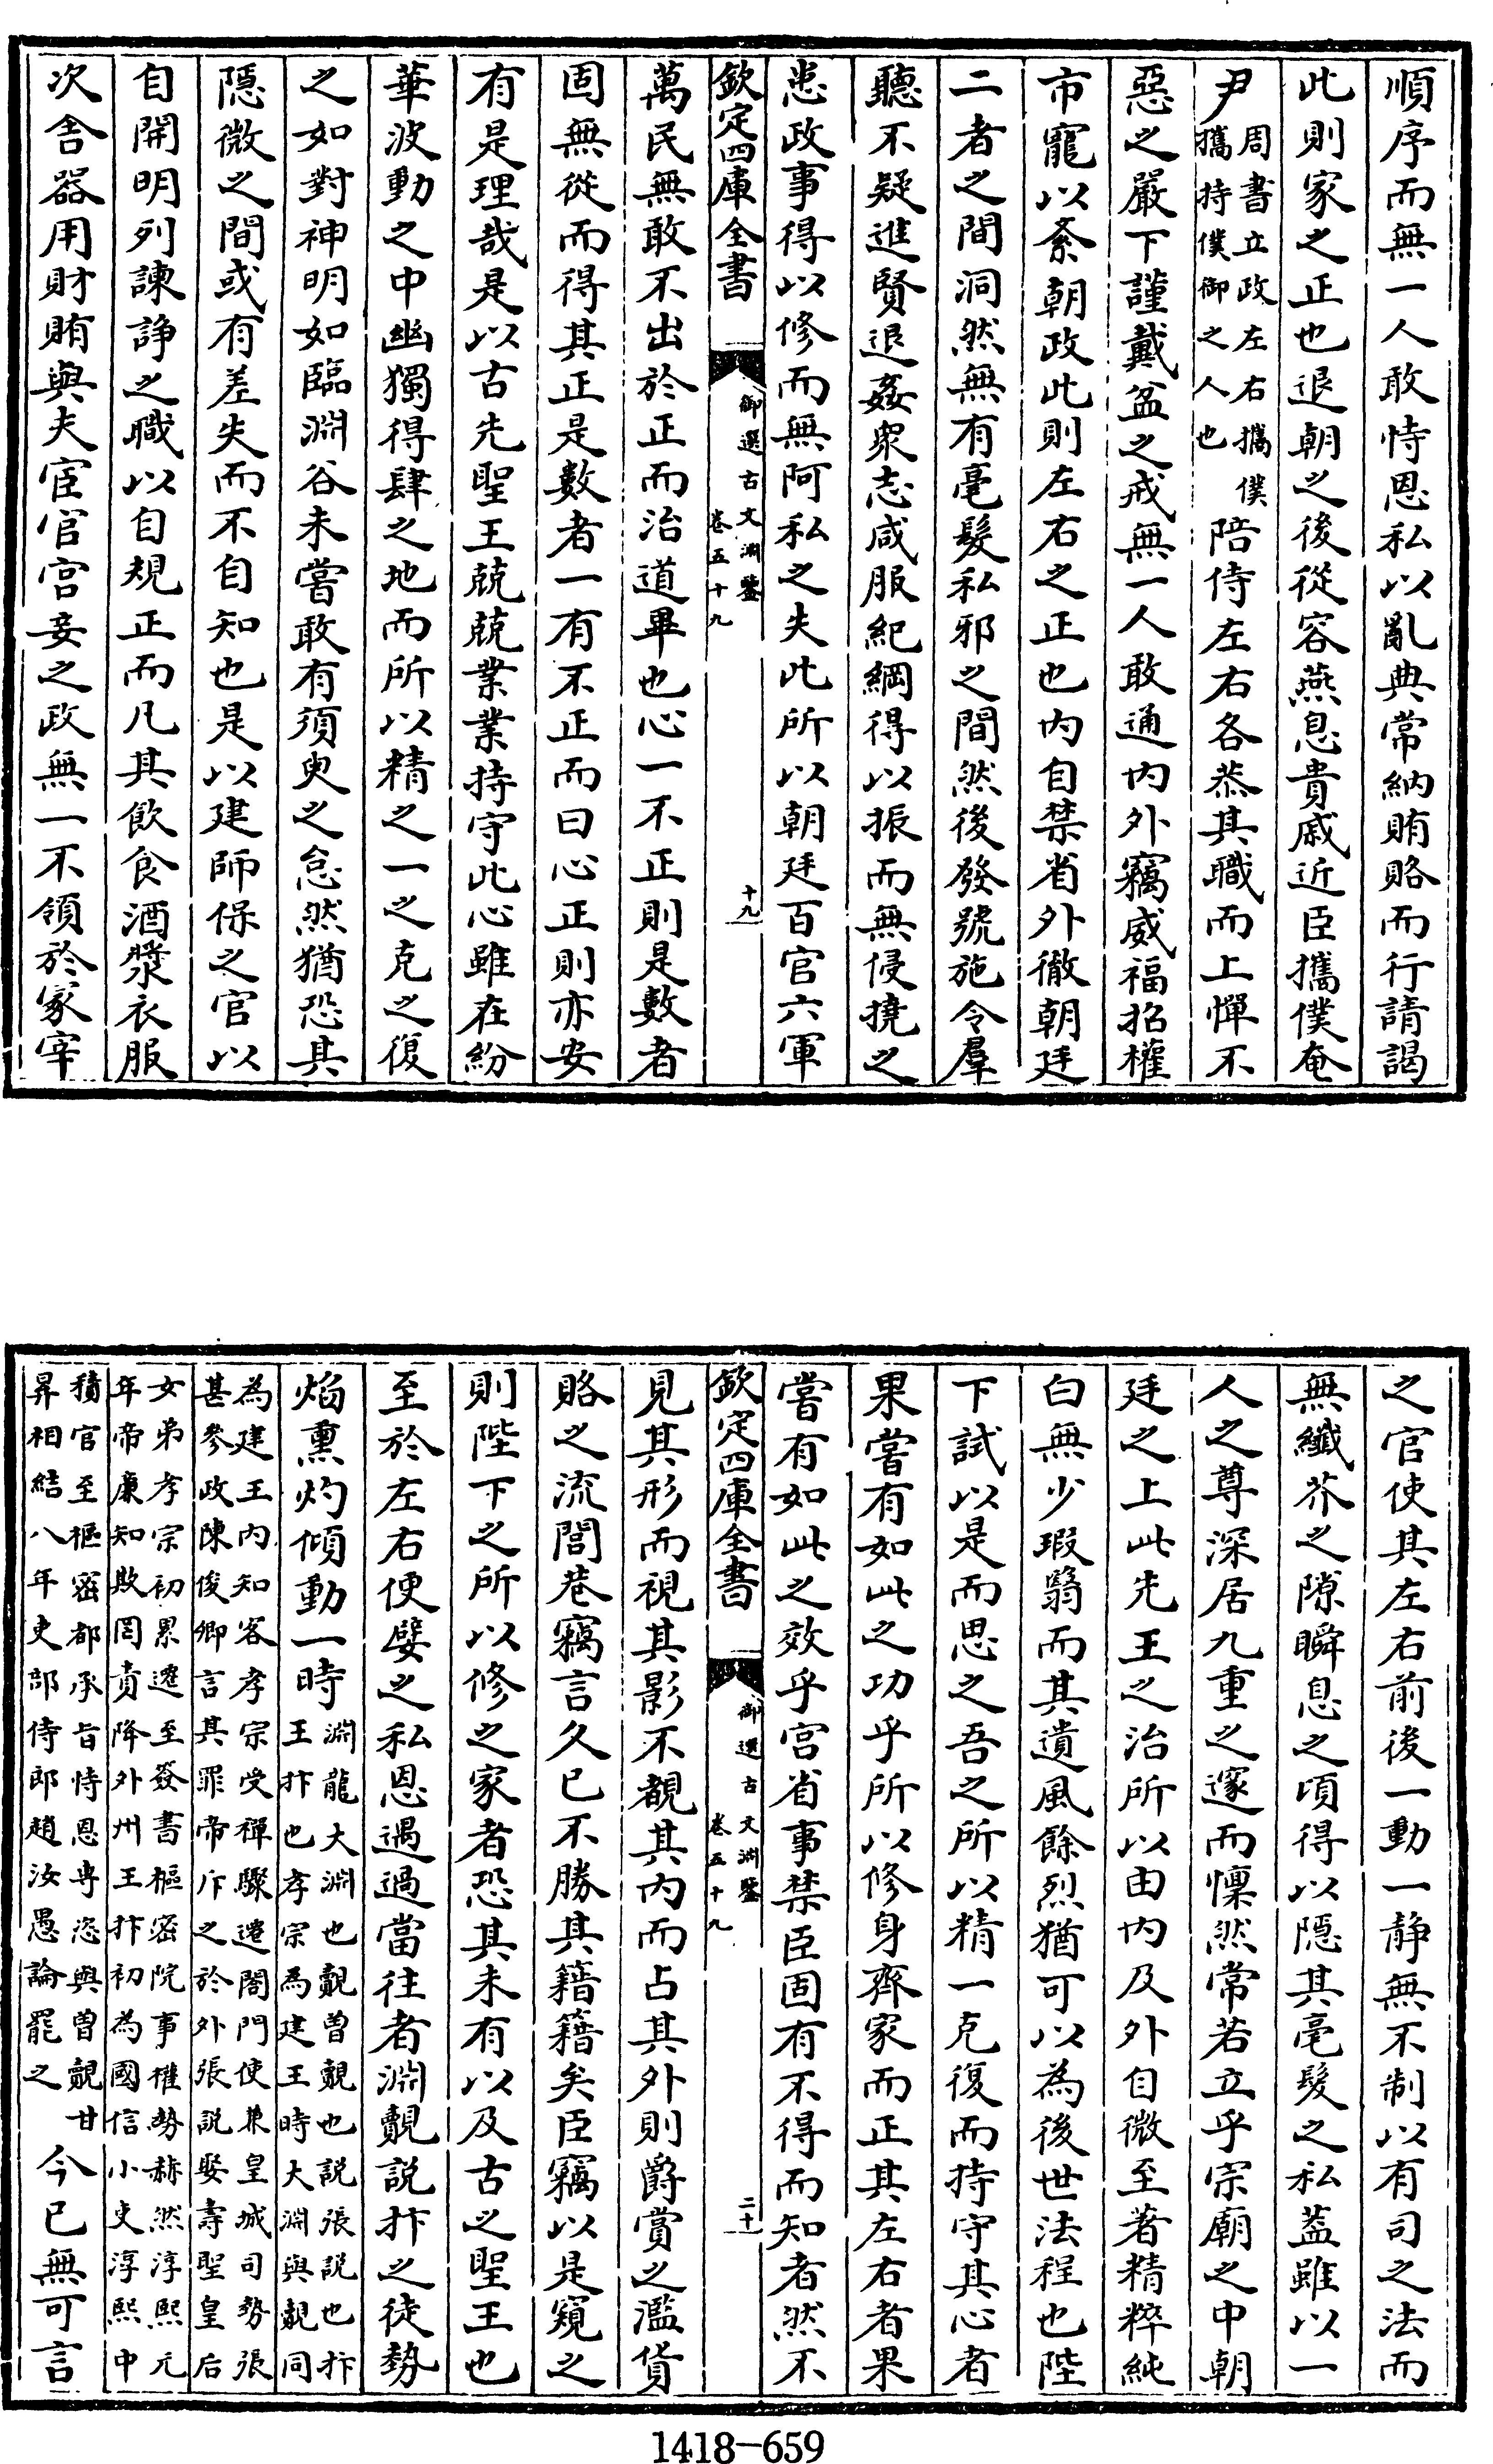 順序而無一人敢恃恩私以亂典常納賄賂而行請謁
此則家之正也退朝之後從容燕息貴戚近臣攜僕奄
尹周書立政左右攜僕攜持僕御之人也陪侍左右各恭其職而上憚不
惡之嚴下謹戴盆之戒無一人敢通内外竊威福招權
市寵以紊朝政此則左右之正也内自禁省外徹朝廷
二者之間洞然無有毫髮私邪之間然後發號施令羣
聽不疑進賢退姦衆志咸服紀綱得以振而無侵撓之
患政事得以修而無阿私之失此所以朝廷百官六軍
欽定四庫全書 御選古文淵鑒 卷五十九 十九
萬民無敢不出於正而治道畢也心一不正則是數者
固無從而得其正是數者一有不正而曰心正則亦安
有是理哉是以古先聖王兢兢業業持守此心雖在紛
華波動之中幽獨得肆之地而所以精之一之克之復
之如對神明如臨淵谷未嘗敢有須臾之怠然猶恐其
隱微之間或有差失而不自知也是以建師保之官以
自開明列諫諍之職以自規正而凡其飲食酒漿衣服
次舍器用財賄與夫宦官宫妾之政無一不領於冢宰
之官使其左右前後一動一靜無不制以有司之法而
無纖芥之隙瞬息之頃得以隱其毫髮之私葢雖以一
人之尊深居九重之邃而懍然常若立乎宗廟之中朝
廷之上此先王之治所以由内及外自微至著精粹純
白無少瑕翳而其遺風餘烈猶可以為後世法程也陛
下試以是而思之吾之所以精一克復而持守其心者
果嘗有如此之功乎所以修身齊家而正其左右者果
嘗有如此之效乎宫省事禁臣固有不得而知者然不
欽定四庫全書 御選古文淵鑒 卷五十九 二十
見其形而視其影不覩其内而占其外則爵賞之濫貨
賂之流閭巷竊言久已不勝其籍籍矣臣竊以是窺之
則陛下之所以修之家者恐其未有以及古之聖王也
至於左右便嬖之私恩遇過當往者淵覿説抃之徒勢
焰熏灼傾動一時淵龍大淵也覿曾覿也説張説也抃王抃也孝宗為建王時大淵與覿同
為建王内知客孝宗受禪驟遷閤門使兼皇城司勢張甚參政陳俊卿言其罪帝斥之於外張説娶壽聖皇后
女弟孝宗初累遷至簽書樞密院事權勢赫然淳熙元年帝廉知欺罔責降外州王抃初為國信小吏淳熙中
積官至樞密都承旨恃恩専恣與曽覿甘昇相結八年吏部侍郎趙汝愚論罷之今已無可言
1418-659